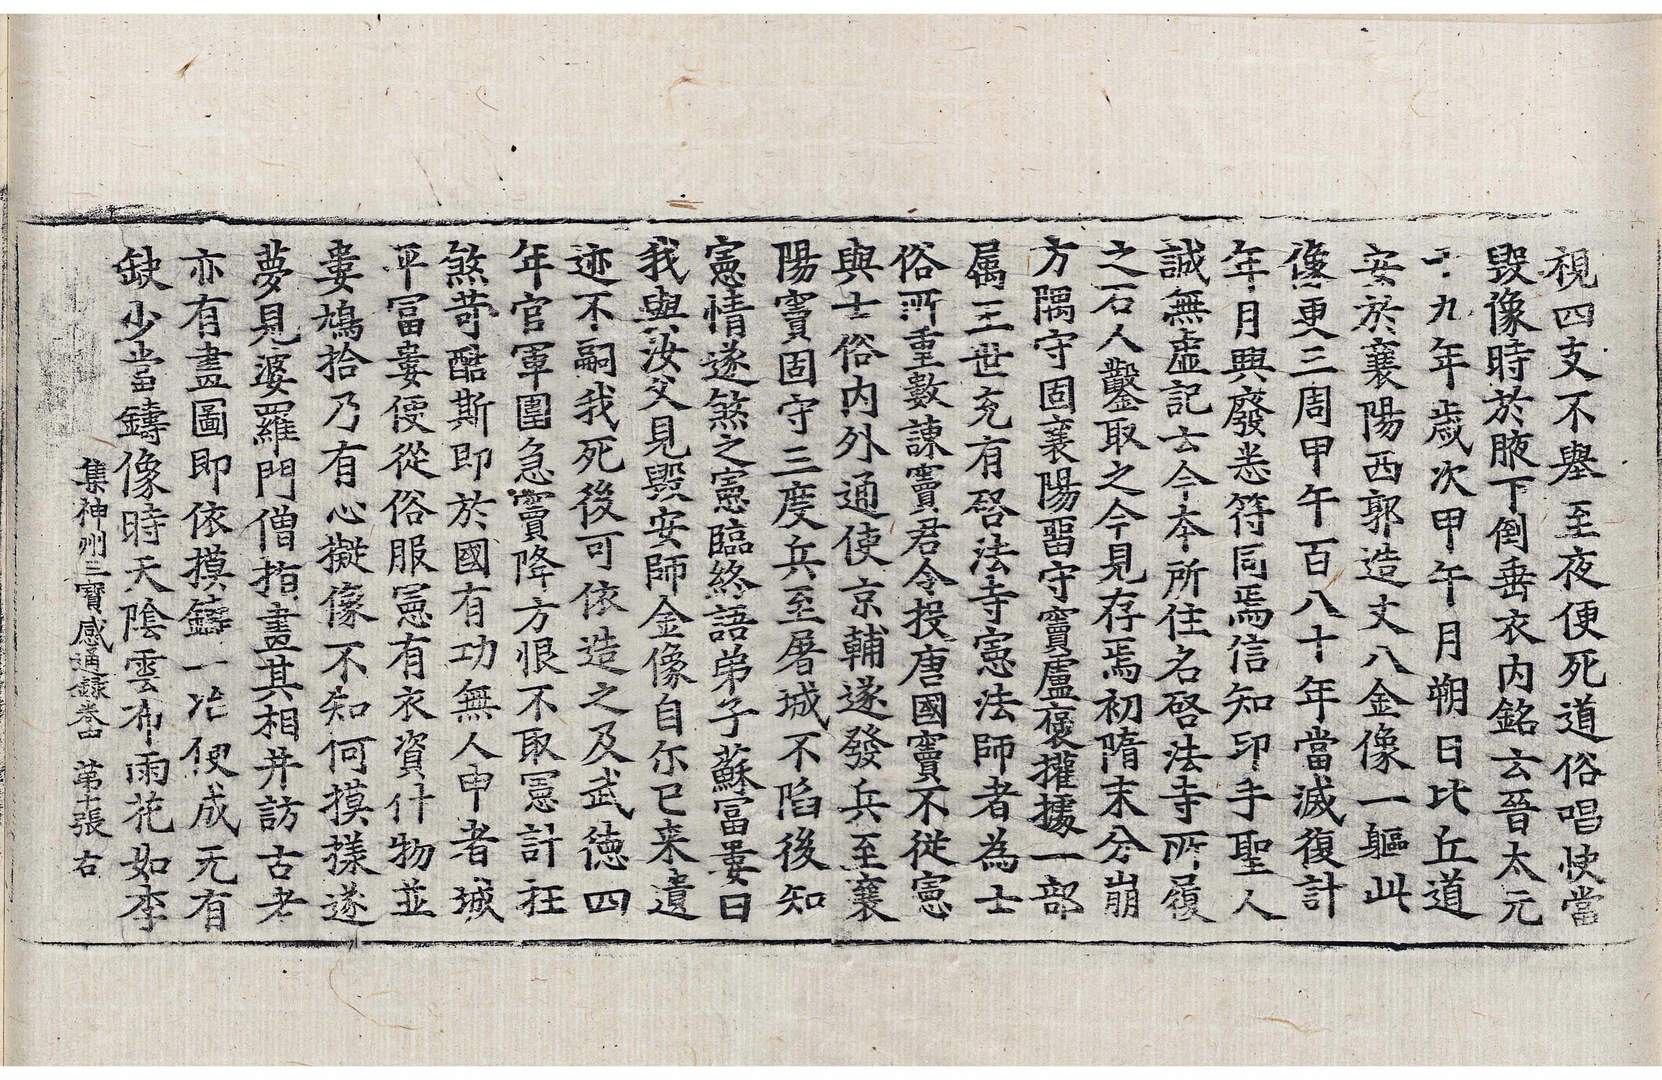 視四支不舉至夜便死道俗唱快當
毀像時於腋下倒垂衣內銘云晉太元
十九年歲次甲午月朔日比丘道
安於襄陽西郭造丈八金像一軀此
像更三周甲午百八十年當滅復計
年月興廢悉符同焉信知印手聖人
誠無虛記云今本所住名啓法寺所履
之石人鑿取之今見存焉初隋末分崩
方隅守固襄陽留守竇盧褒擁據一部
屬王世充有啓法寺憲法師者為士
俗所重數諫竇君令投唐國竇不從憲
與士俗內外通使京輔遂發兵至襄
陽竇固守三度兵至屠城不陷後知
憲情遂煞之憲臨終語弟子蘇富婁曰
我與汝父見毀安師金像自尒已来遺
迹不嗣我死後可依造之及武德四
年官軍圍急竇降方恨不取憲計枉
煞苛酷斯即於國有功無人申者城
平冨婁便從俗服憲有衣資什物並
婁鳩拾乃有心擬像不知何摸㨾遂
夢見婆羅門僧指畫其相并訪古老
亦有畫圖即依摸鑄一冶便成无有
缺少當鑄像時天陰雲布雨花如李
集神州三寶感通錄卷中 第十張 右